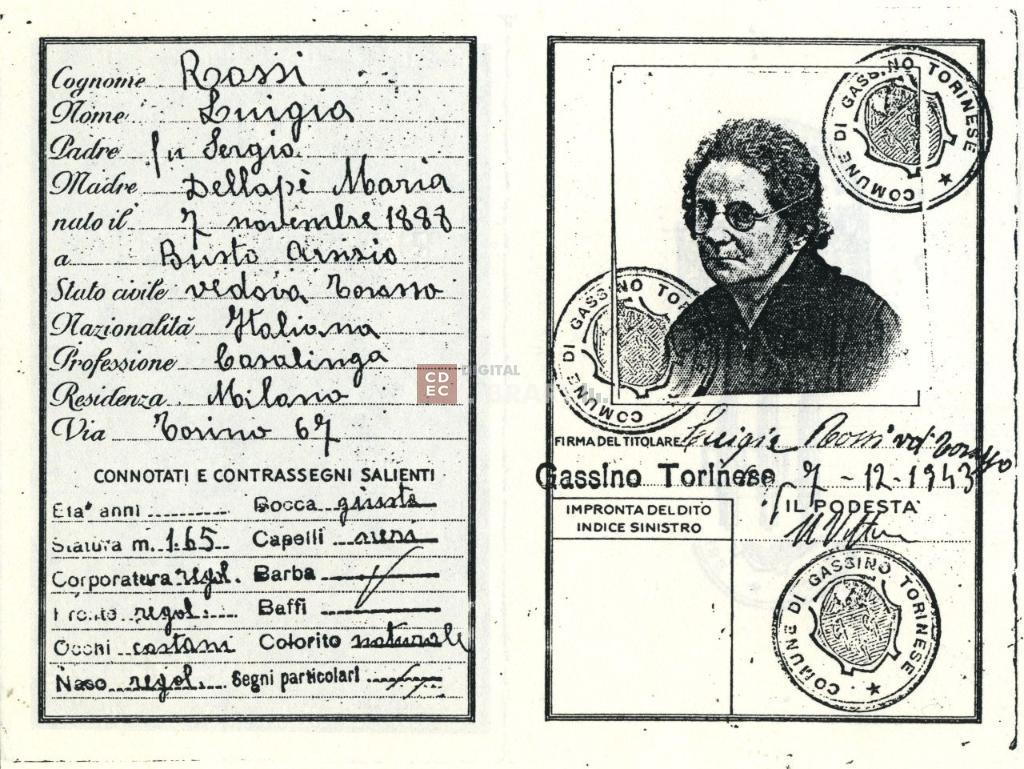 Cognome Rossi
Nome Luigia
Padre fu Sergio
Madre Dellapè Maria
nato il 7 novembre 1888
a Busto Arsizio
Stato civile vedova Torasso
Nazionalità Italiana
Professione Casalinga
Residenza Milano
Via Torino 67
CONNOTATI E CONTRASSEGNI SALIENTI
Età anni
Bocca giusta
Statura m. 1.65
Capelli neri
Corporatura regol.
Barba
Fronte regol.
Baffi
Occhi castani
Colorito naturale
Naso regol.
Segni particolari
CDEC
DIGITAL
LIBRARY
COMUNE DI GASSINO TORINESE
COMUNE DI GASSINO TORINESE
FIRMA DEL TITOLARE Luigia Rossi vd. Torasso
Gassino Torinese 7-12-1943
IMPRONTA DEL DITO
INDICE SINISTRO
IL PODESTÀ
COMUNE DI GASSINO TORINESE